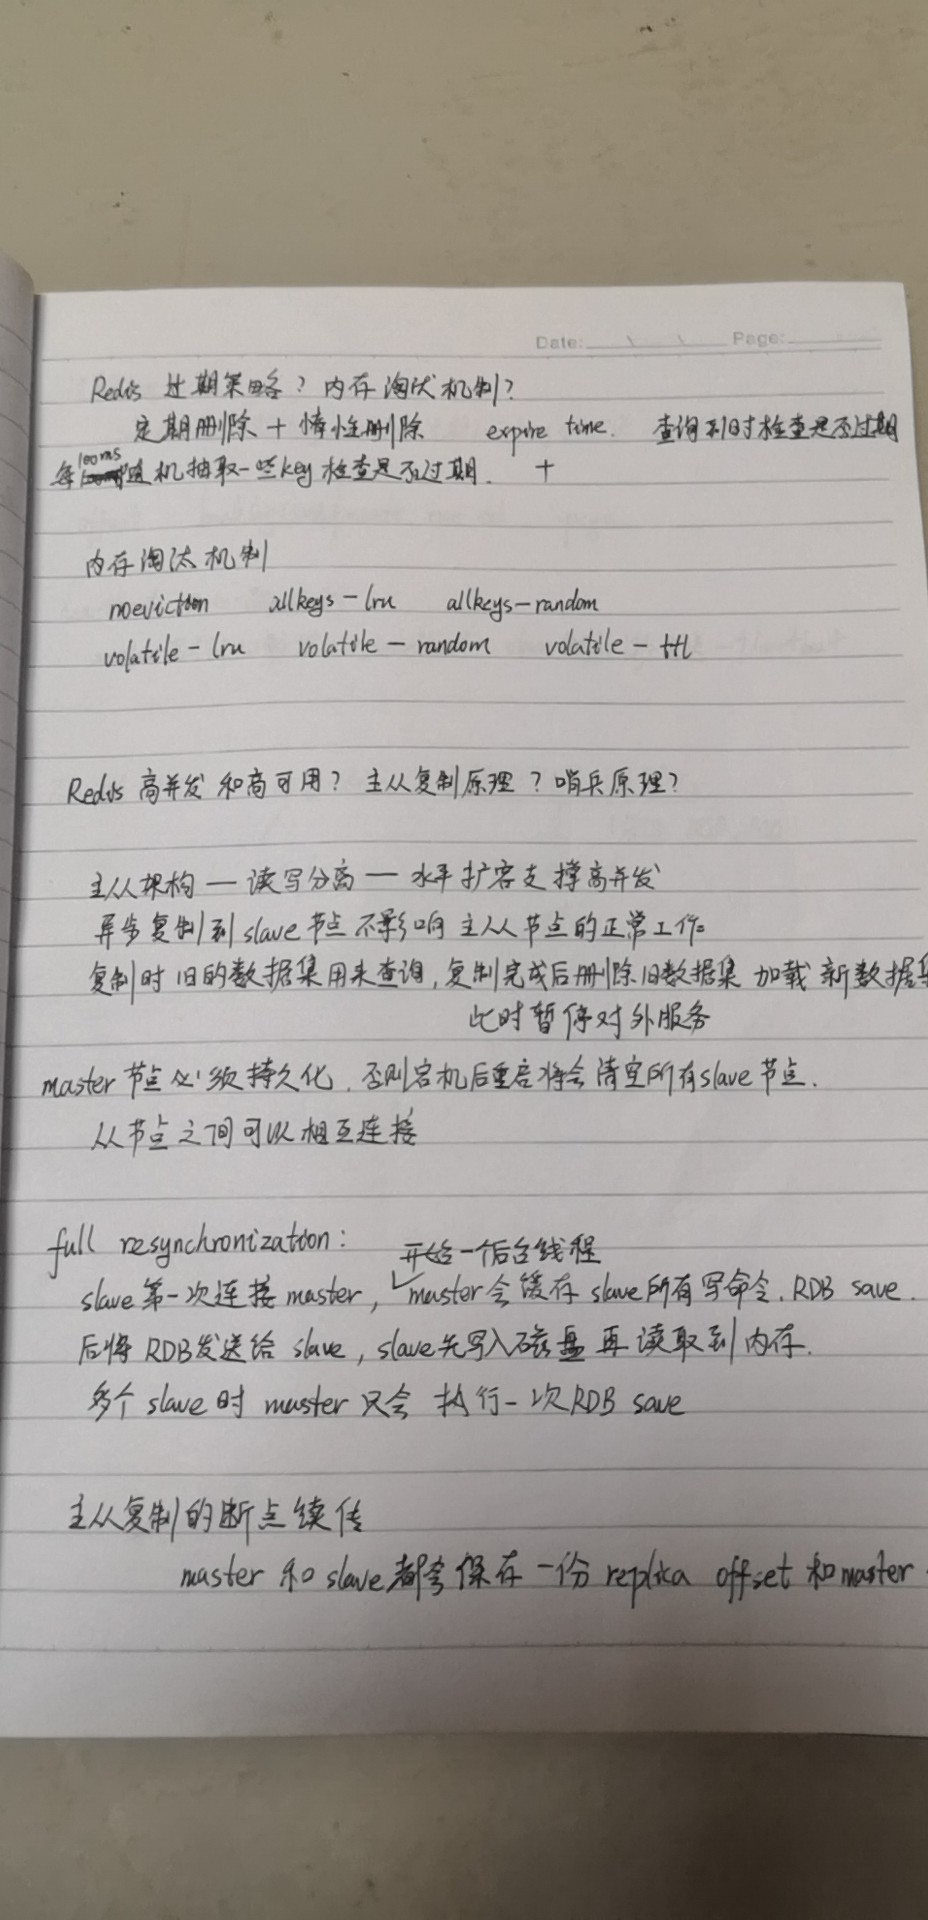 Date: Page:
Redis 过期策略？内存淘汰机制？
定期删除 + 惰性删除 expire time. 查询到时检查是否过期
每100ms随机抽取一些key检查是否过期. +
内存淘汰机制
noeviction allkeys-lru allkeys-random
volatile-lru volatile-random volatile-ttl
Redis 高并发和高可用？主从复制原理？哨兵原理？
主从架构 — 读写分离 — 水平扩容支撑高并发
异步复制到slave节点不影响主从节点的正常工作。
复制时旧的数据集用来查询, 复制完成后删除旧数据集 加载新数据集
此时暂停对外服务
master节点必须持久化. 否则宕机后重启将会清空所有slave节点.
从节点之间可以相互连接
full resynchronization:
开始一个后台线程
slave第一次连接master, master会缓存slave所有写命令. RDB save.
后将RDB发送给slave, slave先写入磁盘再读取到内存.
多个slave时master只会执行一次RDB save
主从复制的断点续传
master和slave都会保存一份replica offset和master